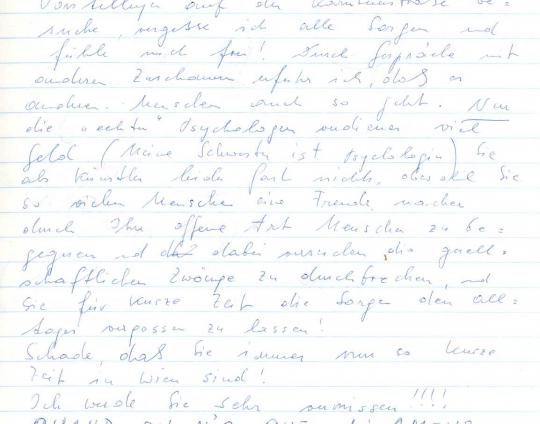 Vorstellungen auf der Kärntnerstraße be=
suche, vergesse ich alle Sorgen und
fühle mich frei! Durch Gespräche mit
anderen Zuschauern erfuhr ich, daß es
anderen Menschen auch so geht. Nur
die "echten" Psychologen verdienen viel
Geld (Meine Schwester ist Psychologin) Sie
als Künstler leider fast nichts, obwohl Sie
so vielen Menschen eine Freude machen
durch Ihre offene Art Menschen zu be=
gegnen und dabei versuchen die gesell=
schaftlichen Zwänge zu durchbrechen, und
Sie für kurze Zeit die Sorgen den All=
tages vergessen zu lassen!
Schade, daß Sie immer nur so kurze
Zeit in Wien sind!
Ich werde Sie sehr vermissen!!!!